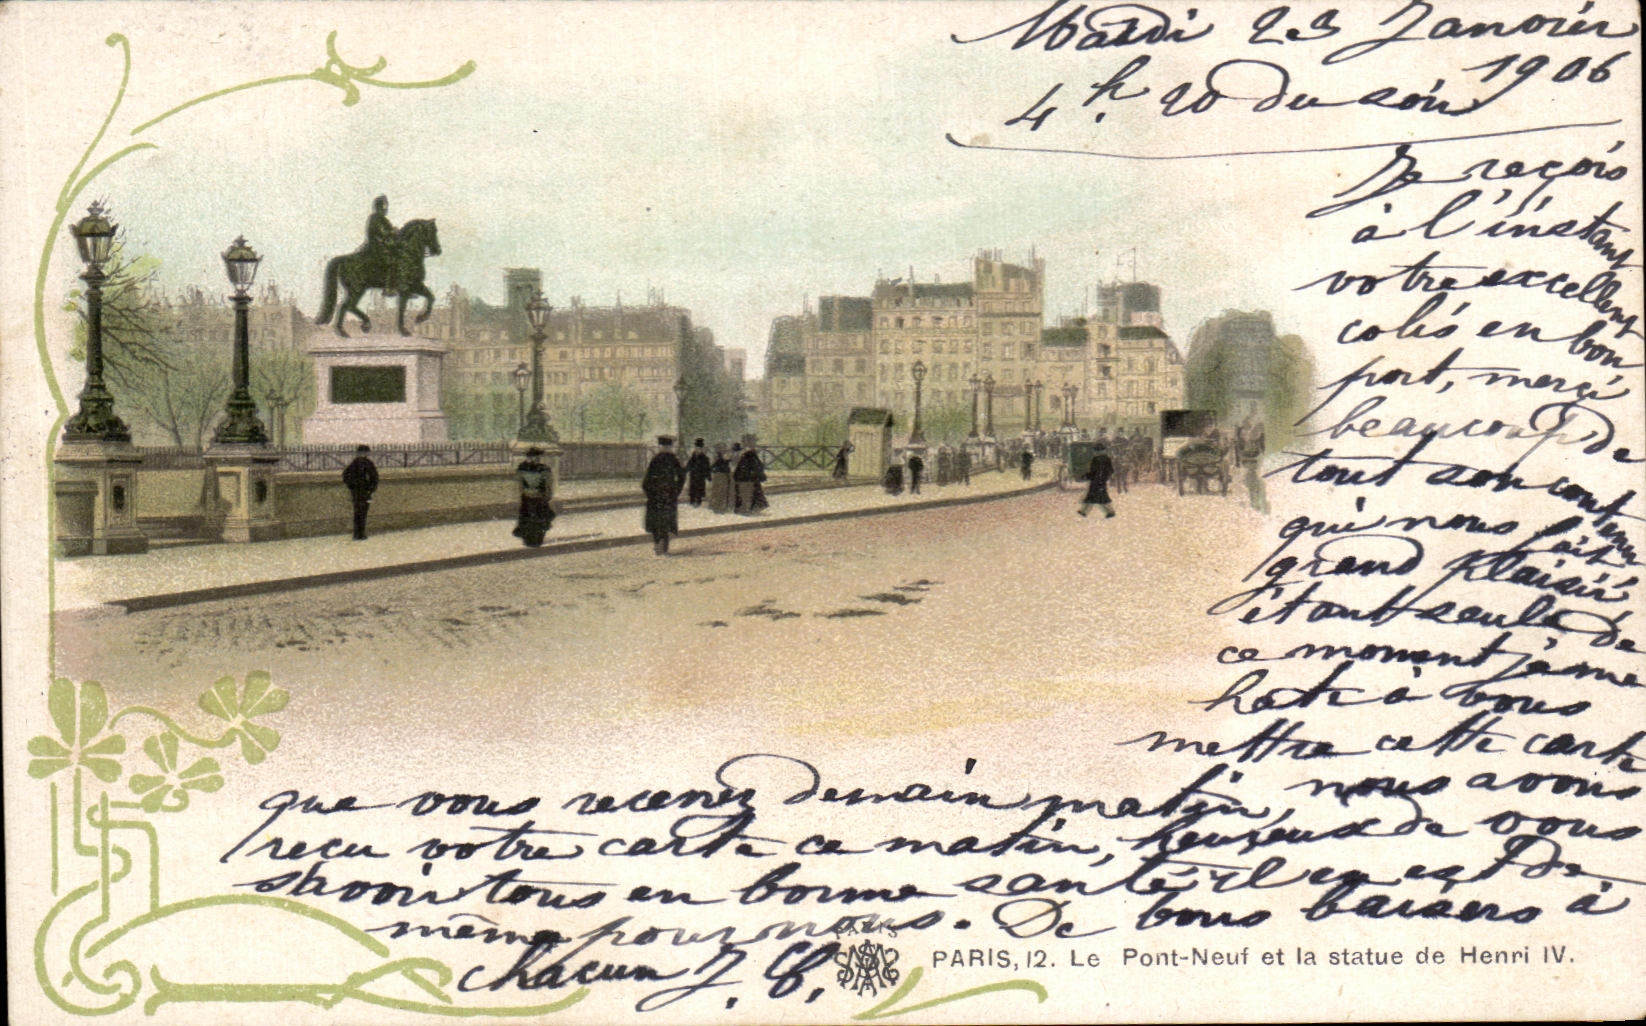 Mardi 23 Janvier
1906
4h. 20 du soir
Je reçois
à l'instant
votre excellent
colis en bon
port, merci
beaucoup de
tout son contenu
qui nous fait
grand plaisir
étant seule de
ce moment je me
hate à vous
mettre cette carte
que vous recevrez demain matin, nous avons
reçu votre carte ce matin, heureux de vous
savoir tous en bonne santé il en est de
même pour nous. De bons baisers à
chacun J.
PARIS
PARIS, 12. Le Pont-Neuf et la statue de Henri IV.